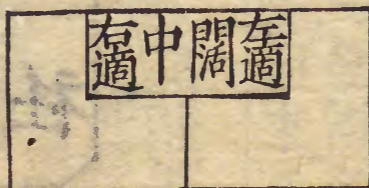 左適
闊
中
右適